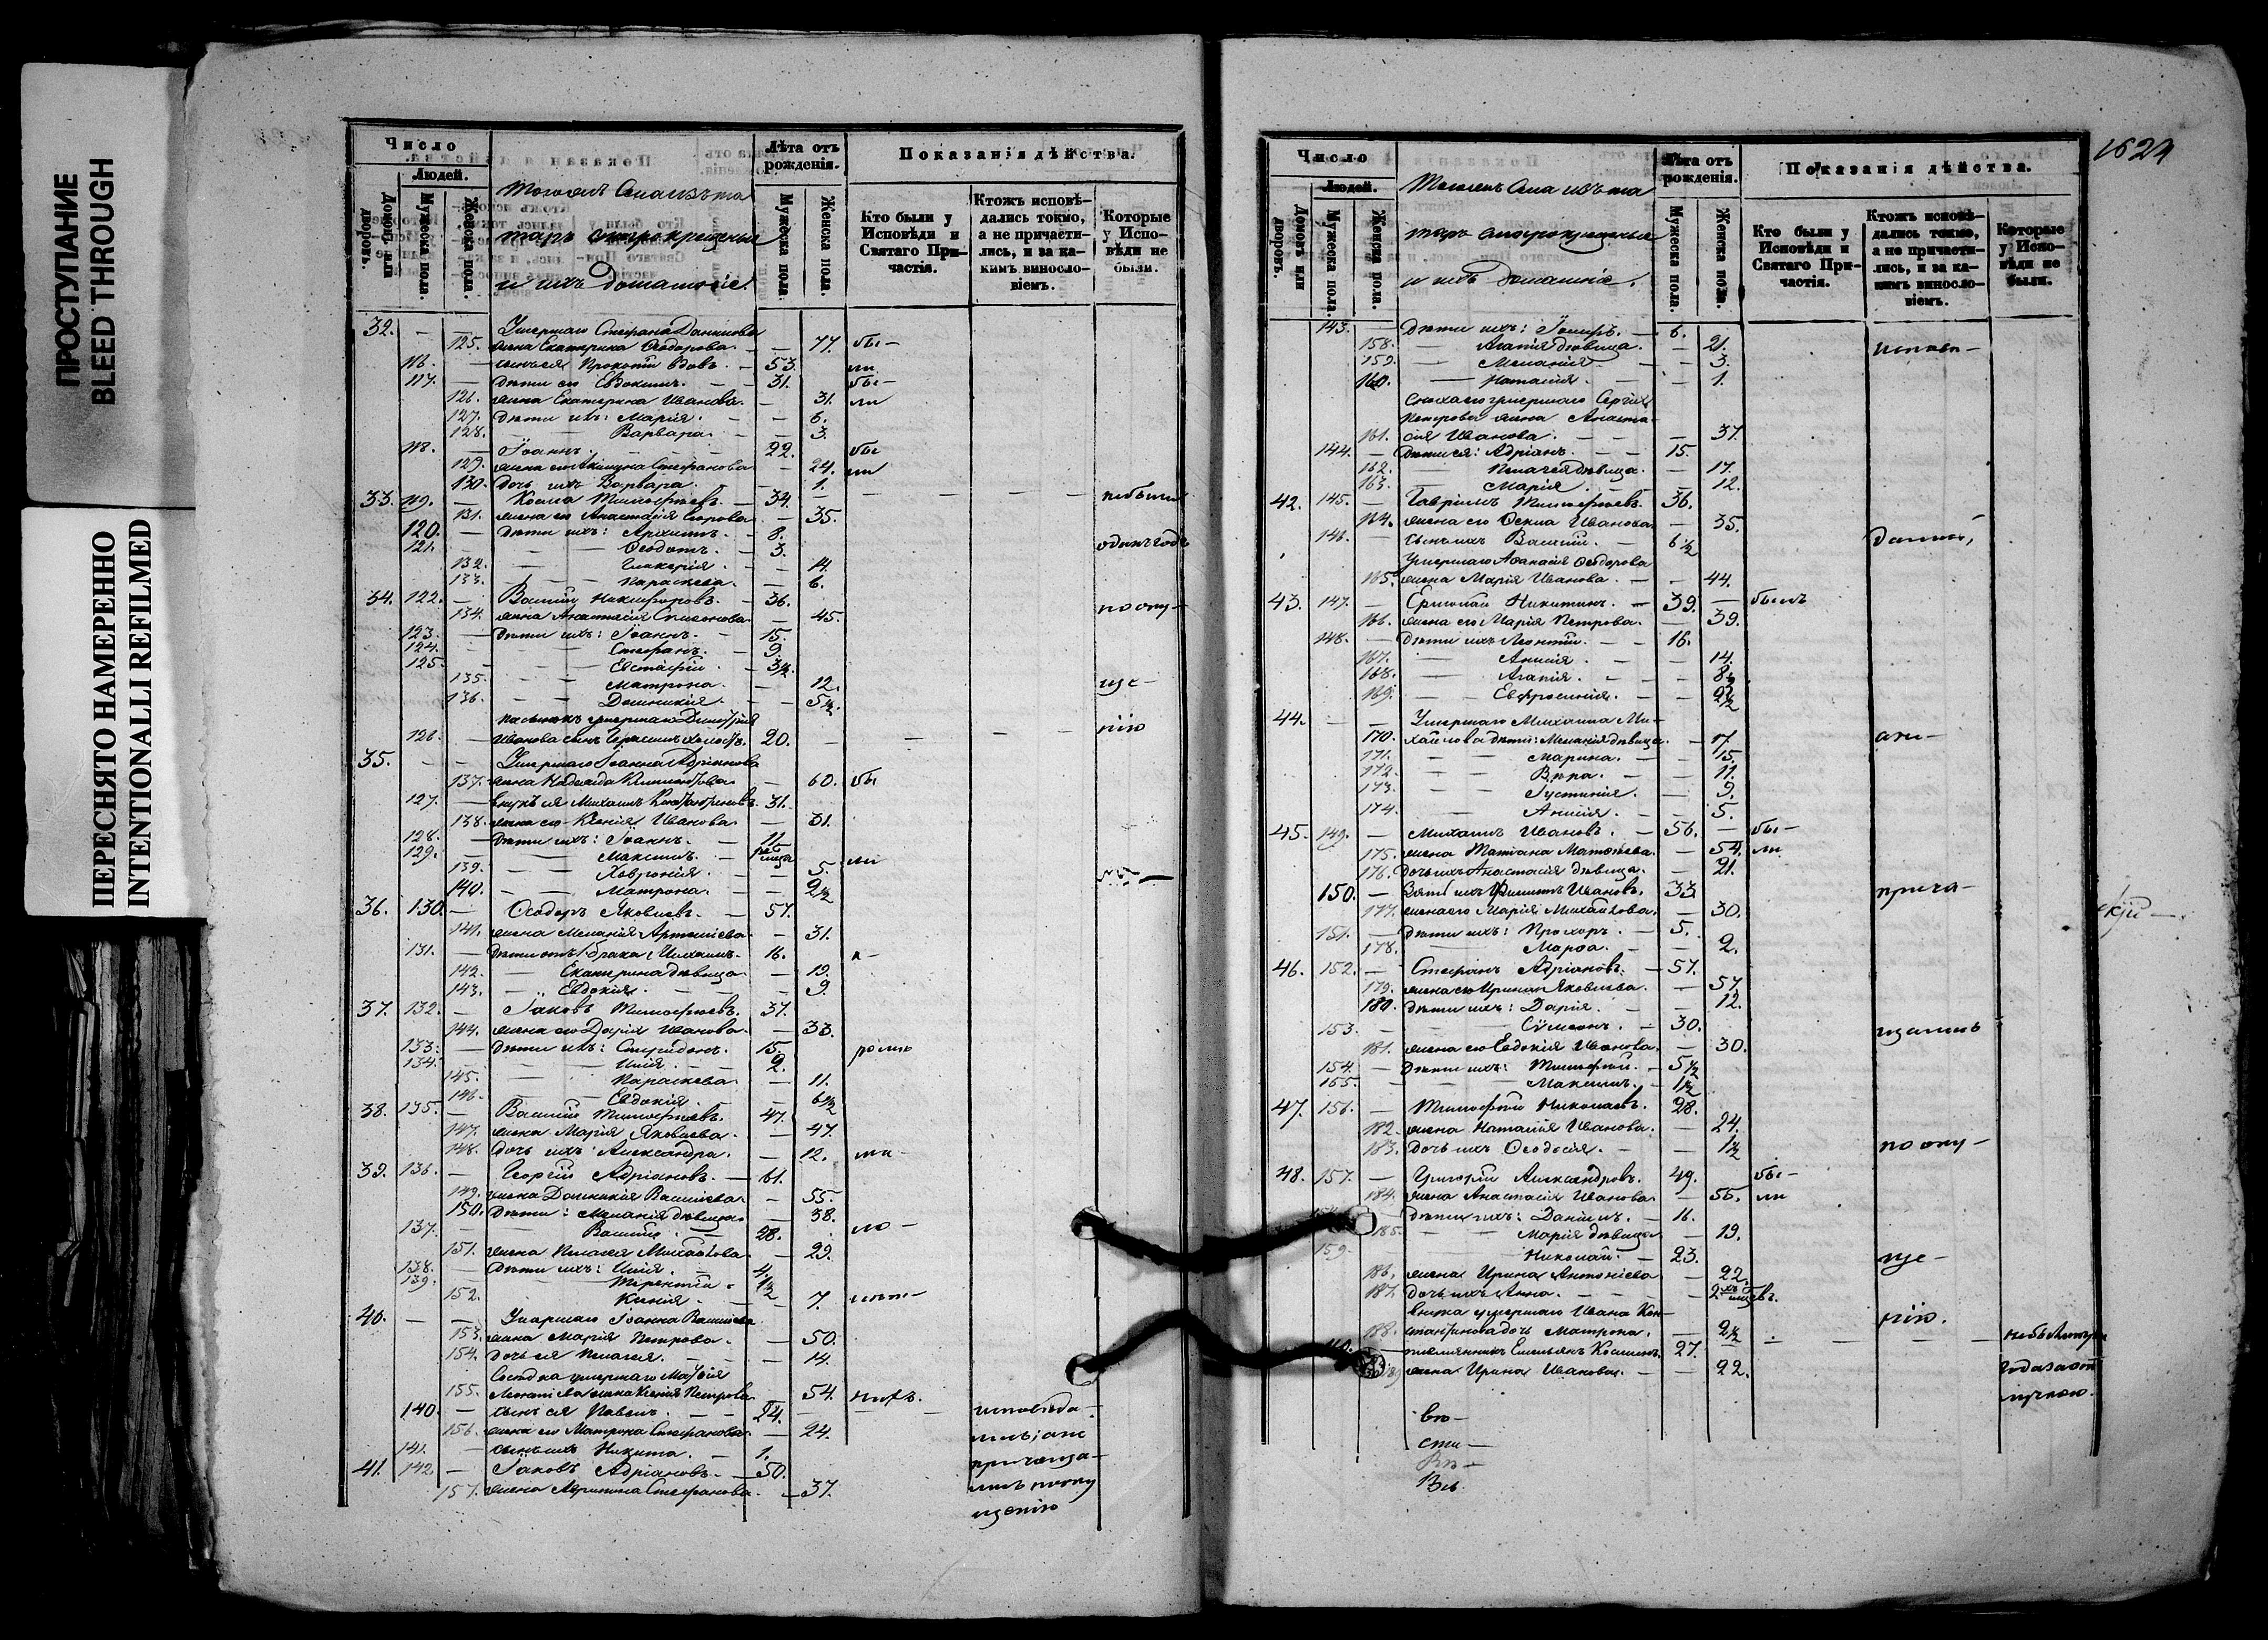 ПРОСТУПАНИЕ
BLEED THROUGH
ПЕРЕСНЯТО НАМЕРЕННО
INTENTIONALLI REFILMED
Число
Людей.
Домовъ или дворовъ.
Мужеска пола.
Женска пола.
таръ старокрещеные
и ихъ домашніе.
Лѣта отъ рожденія.
Мужеска пола.
Женска пола.
Показанія дѣйства.
Кто были у Исповѣди и Святаго Причастія.
Ктожъ исповѣдались токмо, а не причастились, и за какимъ винословіемъ.
Которые у Исповѣди не были.
32. — — Умершаго Стефана Данилова
125. жена Екатерина Ѳеодорова. — 77. бы—
116. — сынъ ея Прокопій вдовъ. — 53. ли
117. — дѣти его Евдокимъ. — 31. бы—
126. жена Екатерина Иванова. — 31. ли
127. дѣти ихъ: Марія. — 6.
128. — Варвара. — 3.
118. — Іоаннъ. — 22. бы
129. жена его Акилина Стефанова — 24. ли
130. дочь ихъ Варвара. — 1.
33. 119. — Косма Тимофеевъ. — 34. — небыли
131. жена его Анастасія Егорова — 35.
120. — дѣти ихъ: Архипъ. — 8.
121. — Ѳеодотъ. — 3. одинъ годъ
132. — Гликерія — 14.
133. — Параскева. — 6.
34. 122. — Василій Никифоровъ. — 36. по опу—
134. жена Анастасія Симонова — 45.
123. — дѣти ихъ: Іоаннъ. — 15.
124. — Стефанъ. — 9.
125. — Евстафій. — 3½.
135. — Матрона. — 12. ще—
136. — Домникія. — 5½.
пасынокъ умершаго Димитрія нію
126. — Иванова сынъ Герасимъ холостъ. 20.
35. — — Умершаго Іоанна Адріанова
137. жена Надежда Климентова — 60. бы
127. — внукъ ея Михаилъ 31.
138. жена его Ксенія Иванова. — 31.
128. — дѣти ихъ: Іоаннъ. — 11
129. — Максимъ. — ли
139. — Хавронія. — 5.
140. — Матрона. — 2½
36. 130. — Ѳеодоръ Яковлевъ. — 57.
141. жена Меланія Артемьева. — 31.
131. — дѣти отъ 1 брака: — 16. к—
142. — Екатерина дѣвица — 19.
143. — Евдокія. — 9.
37. 132. — Іаковъ Тимофеевъ. 37.
144. жена его Дарія Иванова. — 33.
133. — дѣти ихъ: Спиридонъ. 15.
134. — Илія. — 2.
145. — Параскева — 11.
146. — Евдокія. — 6½
38. 135. — Василій Тимофеевъ. 47.
147. жена Марія Яковлева. — 47.
148. дочь ихъ Александра. — 12.
39. 136. — Георгій Адріановъ. — 61.
149. жена Домникія Васильева. — 55.
150. дѣти: Меланія дѣвица — 38.
137. — Василій. — 28.
151. жена Пелагея Михайлова. — 29.
138. — дѣти ихъ: Илія. — 4.
139. — Терентій. 1½
152. Ксенія. — 7.
40. — — Умершаго Іоанна Васильева
153. жена Марія Петрова. — 50.
154. дочь ея Пелагея. — 14.
Сосѣдка умершаго Матѳія
155. жена Ксенія Петрова 54.
140. — сынъ ея Павелъ. — 24. исповѣда
156. жена его Матрона Стефанова. — 24. лись, а не
141. — сынъ ихъ Никита. — 1. причаща—
41. 142 — Іаковъ Адріановъ. — 50. лись по опу
157. жена Акилина Стефанова. — 37. щенію
1624
Число
Людей.
Домовъ или дворовъ.
Мужеска пола.
Женска пола.
таръ старокрещеные
и ихъ домашніе.
Лѣта отъ рожденія.
Мужеска пола.
Женска пола.
Показанія дѣйства.
Кто были у Исповѣди и Святаго Причастія.
Ктожъ исповѣдались токмо, а не причастились, и за какимъ винословіемъ.
Которые у Исповѣди не были.
143. — дѣти ихъ: — 6.
158. — Агапія дѣвица. — 21. испов—
159. — Меланія — 3.
160. — Наталія — 1.
Сноха его умершаго Сергія
Петрова жена Анаста—
161. сія Иванова. — 37.
144. — дѣти ея: Адріанъ. — 15.
162. — Пелагея дѣвица. — 17.
163. — Марія. — 12.
42. 145. — Гавріилъ Тимофеевъ. 36.
164. жена его Ѳекла Иванова — 35.
146. — сынъ ихъ Василій. — 6½ дались,
Умершаго Аѳанасія Ѳеодорова
165. жена Марія Иванова. — 44.
43. 147. — Ермолай Никитинъ. — 39. — былъ
166. жена его Марія Петрова. — 39.
148. — дѣти ихъ Леонтій. — 16.
167. — Анисія. — 14.
168. — Агапія. — 8½
169. — Евфросинія. — 2½
44. — — Умершаго Михаила Ми—
170. хайлова дѣти: Меланія дѣвица. — 17. а не—
171. — Марина. — 15.
172. — Вѣра. — 11.
173. — Іустинія. — 9.
174. — Анисія. — 5.
45. 149. — Михаилъ Ивановъ. — 56. — бы—
175. жена Татіана Матвѣева. — 54. ли
176. дочь ихъ Анастасія дѣвица. — 21.
150. — Зять ихъ Филиппъ Ивановъ. 33 прича—
177. жена его Марія Михайлова. — 30.
151. — дѣти ихъ: Прохоръ. — 5.
178. — Марѳа. — 2.
46. 152. — Стефанъ Адріановъ. — 57.
179. жена его Ирина Яковлева. — 57.
180. дѣти ихъ: Дарія. — 12.
153. — Сѵмеонъ. — 30. щались
181. жена его Евдокія Иванова. — 30.
154. — дѣти ихъ: Тимофей. — 5½
155. — Максимъ. — 1½
47. 156. — Тимофей Николаевъ. 28.
182. жена Наталія Иванова. — 24.
183. дочь ихъ Ѳеодосія. — 1½ по опу—
48. 157. — Григорій Александровъ. 49. бы—
184. жена Анастасія Иванова — 55. ли
дѣти ихъ: Даніилъ. — 16.
185. — Марія дѣвица — 19.
159. Николай. — 23. ще—
186. жена Ирина Антоніева — 22.
187. дочь ихъ Анна. — 2 мѣсяцевъ.
внука умершаго Ивана Кон— нію.
188. стантинова дочь Матрона. — 2½
племянникъ Емельянъ Косминъ. 27.
жена Ирина Иванова. — 22.